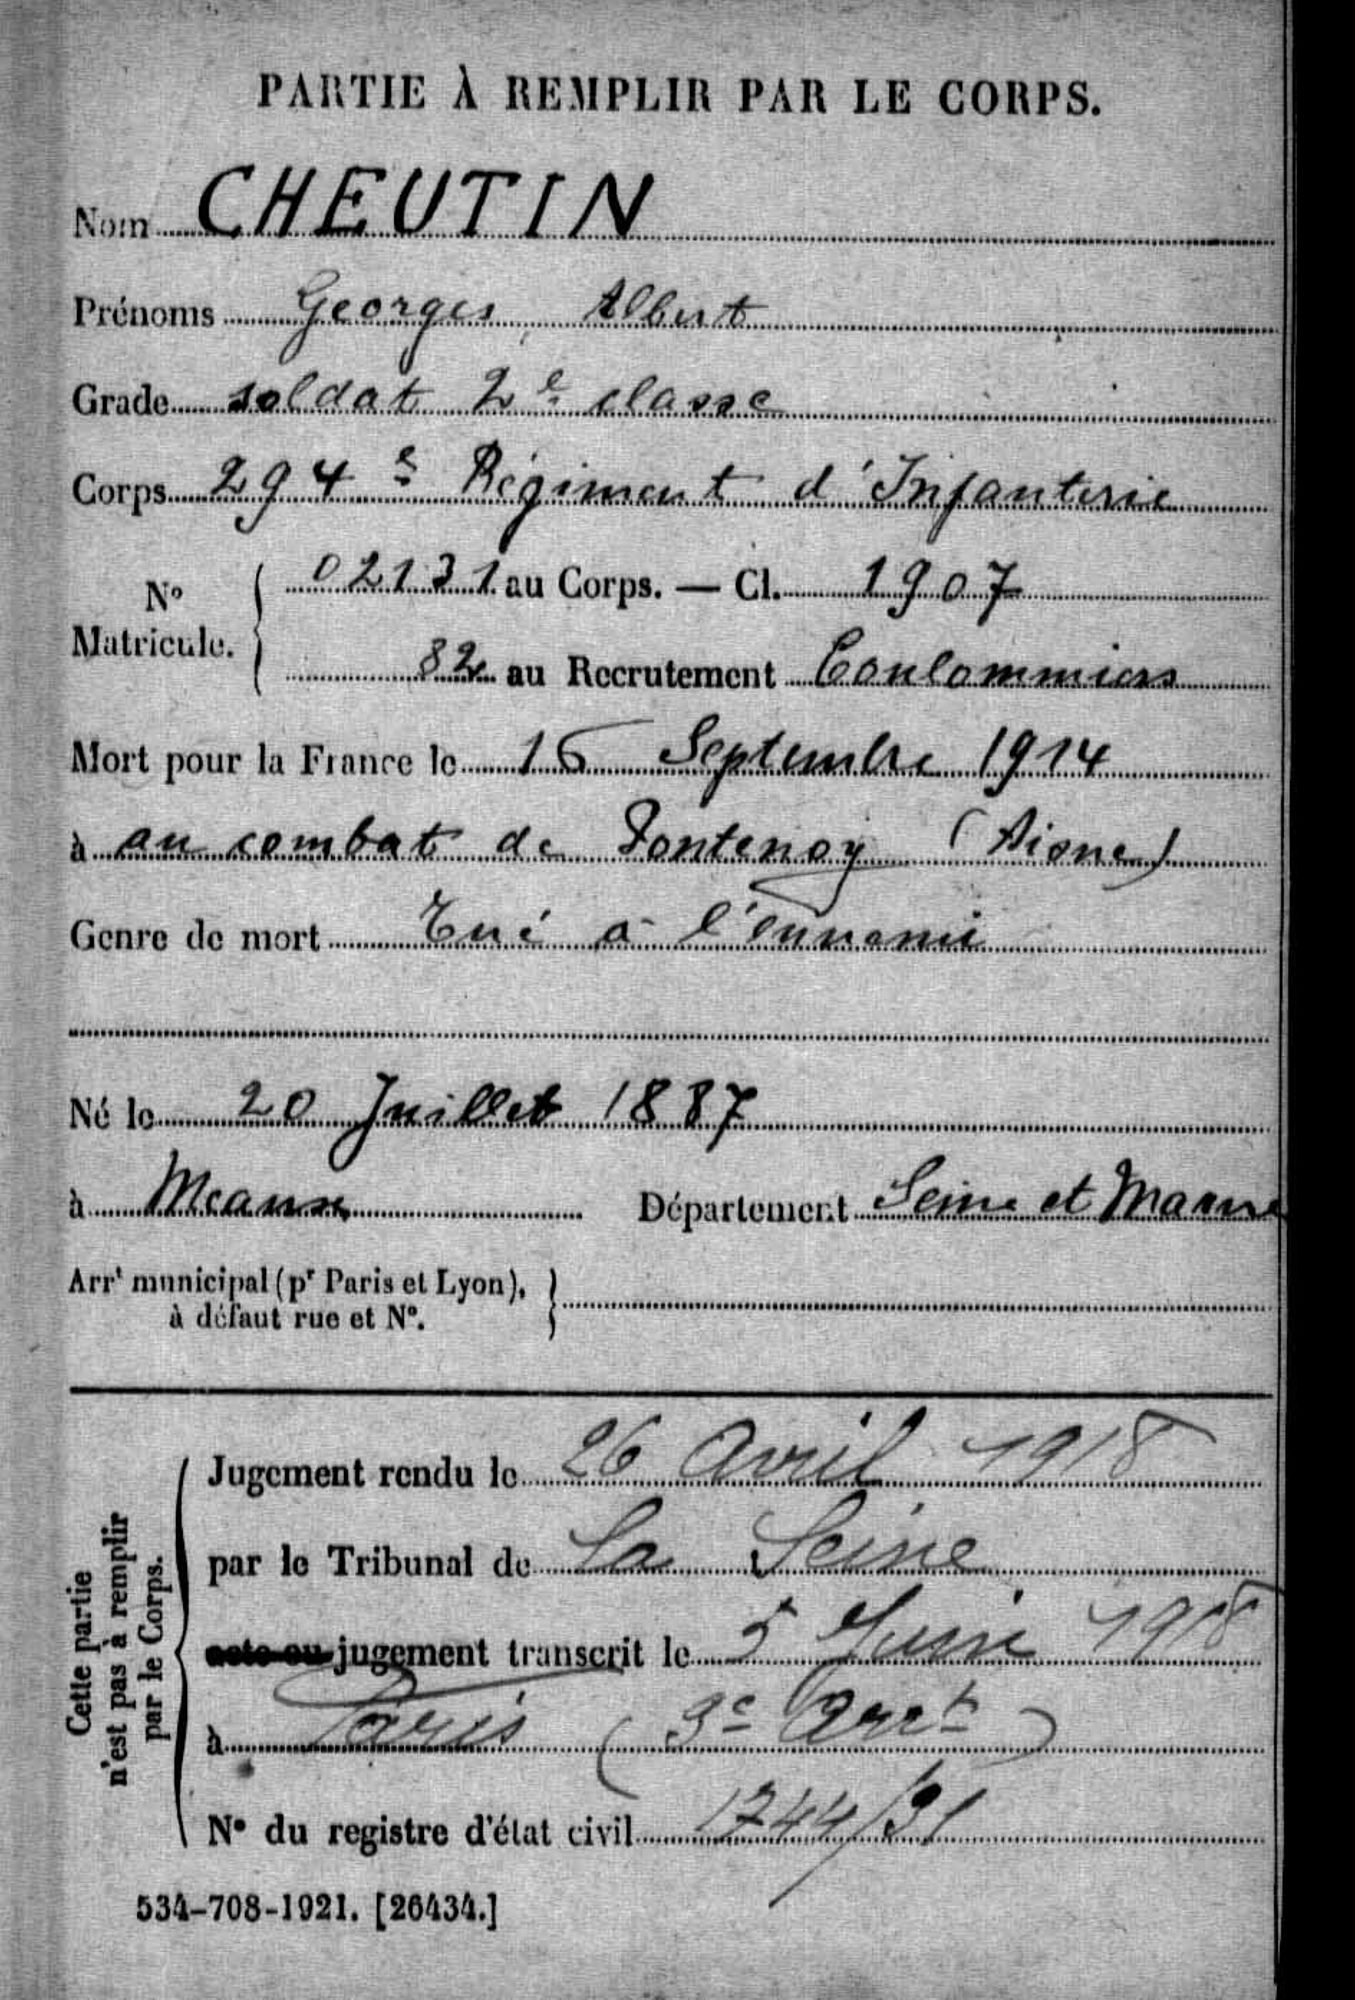 PARTIE À REMPLIR PAR LE CORPS.
Nom CHEUTIN
Prénoms Georges, Albert
Grade soldat 2e classe
Corps 294e Régiment d'Infanterie
No Matricule. 02131 au Corps. — Cl. 1907
82 au Recrutement Coulommiers
Mort pour la France le 16 Septembre 1914
à au combat de Fontenoy (Aisne)
Genre de mort Tué à l'ennemi
Né le 20 Juillet 1887
à Meaux Département Seine et Marne
Arrt municipal (pr Paris et Lyon),
à défaut rue et No.
Cette partie
n'est pas à remplir
par le Corps.
Jugement rendu le 26 Avril 1918
par le Tribunal de La Seine
acte ou jugement transcrit le 5 Juin 1918
à Paris (3e Arrt)
No du registre d'état civil 1744/31
534-708-1921. [26434.]